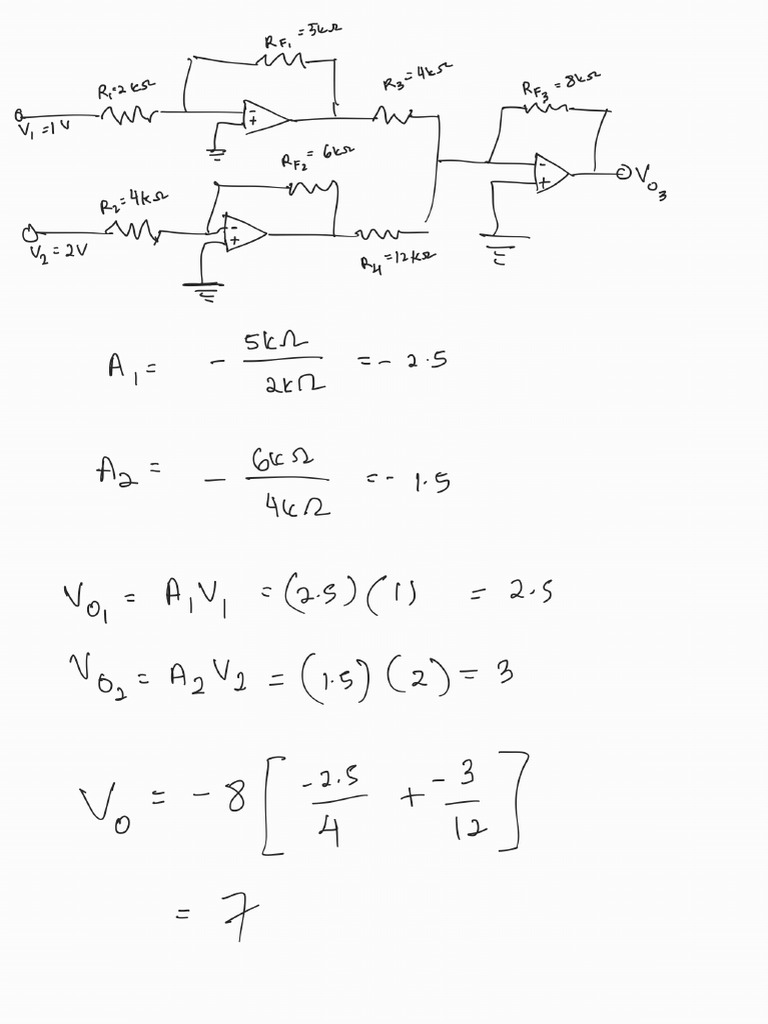 R_F1 = 5kΩ
R_3 = 4kΩ
R_F3 = 8kΩ
R_1 = 2kΩ
V_1 = 1V
-
+
R_F2 = 6kΩ
-
+
V_O3
R_2 = 4kΩ
V_2 = 2V
-
+
R_4 = 12kΩ
A_1 = - 5kΩ / 2kΩ = - 2.5
A_2 = - 6kΩ / 4kΩ = - 1.5
V_O1 = A_1 V_1 = (2.5) (1) = 2.5
V_O2 = A_2 V_2 = (1.5) (2) = 3
V_O = - 8 [ -2.5 / 4 + - 3 / 12 ]
= 7